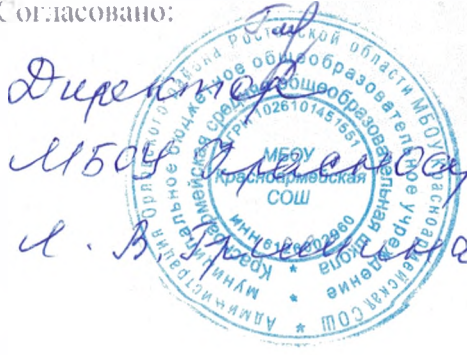 Согласовано:
Директор
МБОУ Красноар
Л. В. Гришина
Администрация Орловского района Ростовской области МБОУ Красноармейская СОШ
муниципальное бюджетное общеобразовательное учреждение
Красноармейская средняя общеобразовательная школа
ОГРН 1026101451551
МБОУ
Красноармейская
СОШ
ИНН